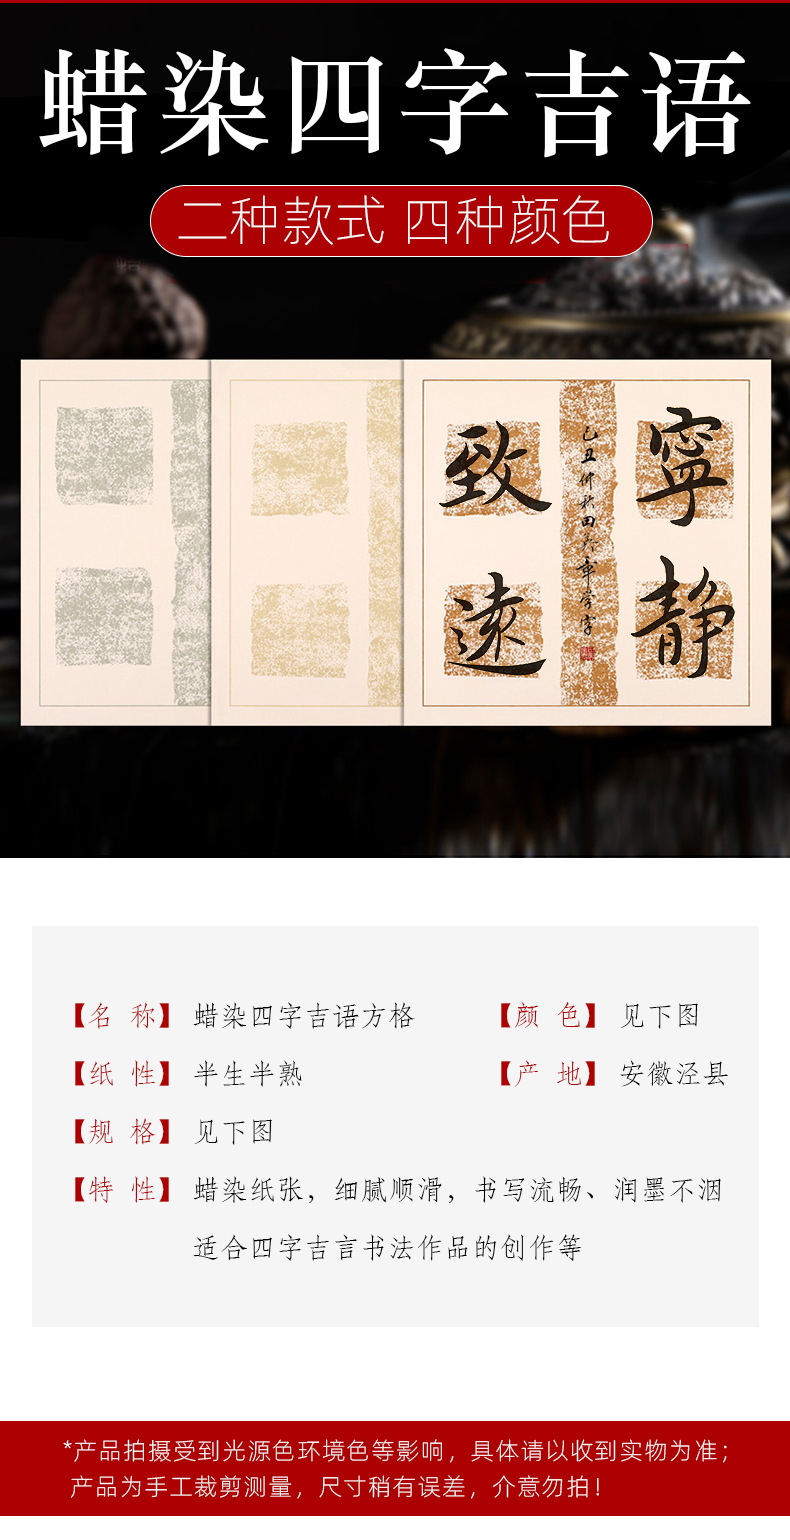 蜡染四字吉语
二种款式 四种颜色
寧静
致遠
【名 称】 蜡染四字吉语方格
【颜 色】 见下图
【纸 性】 半生半熟
【产 地】 安徽泾县
【规 格】 见下图
【特 性】 蜡染纸张，细腻顺滑，书写流畅、润墨不洇
适合四字吉言书法作品的创作等
*产品拍摄受到光源色环境色等影响，具体请以收到实物为准；
产品为手工裁剪测量，尺寸稍有误差，介意勿拍！